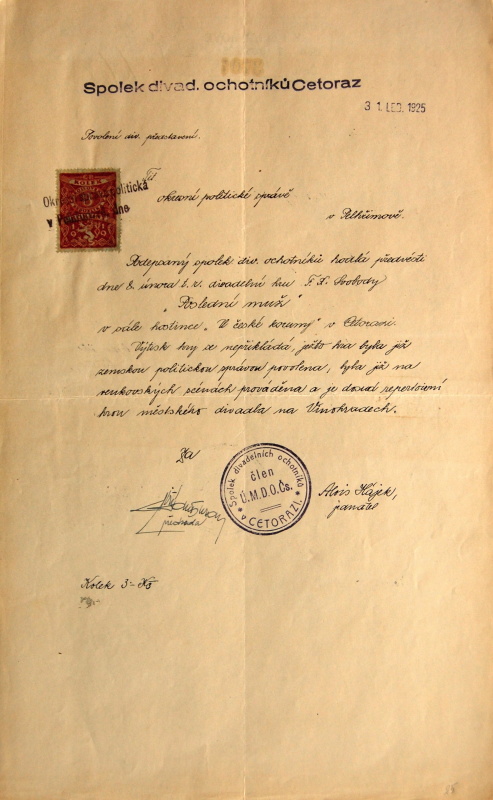 Spolek divad. ochotníků Cetoraz
31. LED. 1925
Povolení div. představení.
KOLEK
Okresní politická
v dne
okresní politické správě
v Pelhřimově.
Podepsaný spolek div. ochotníků hodlá předvésti
dne 8. února t. r. divadelní hru F. X. Svobody
"Poslední muž"
v sále hostince "U české koruny" v Cetorazi.
Výtisk hry se nepřikládá, ježto hra byla již
zemskou politickou správou povolena, byla již na
venkovských scénách prováděna a je dosud repertoirní
hrou městského divadla na Vinohradech.
Za
Spolek divadelních ochotníků
člen
Ú.M.D.O.Čs.
v CETORAZI.
Alois Hájek,
jednatel
předseda
Kolek 3- Kč